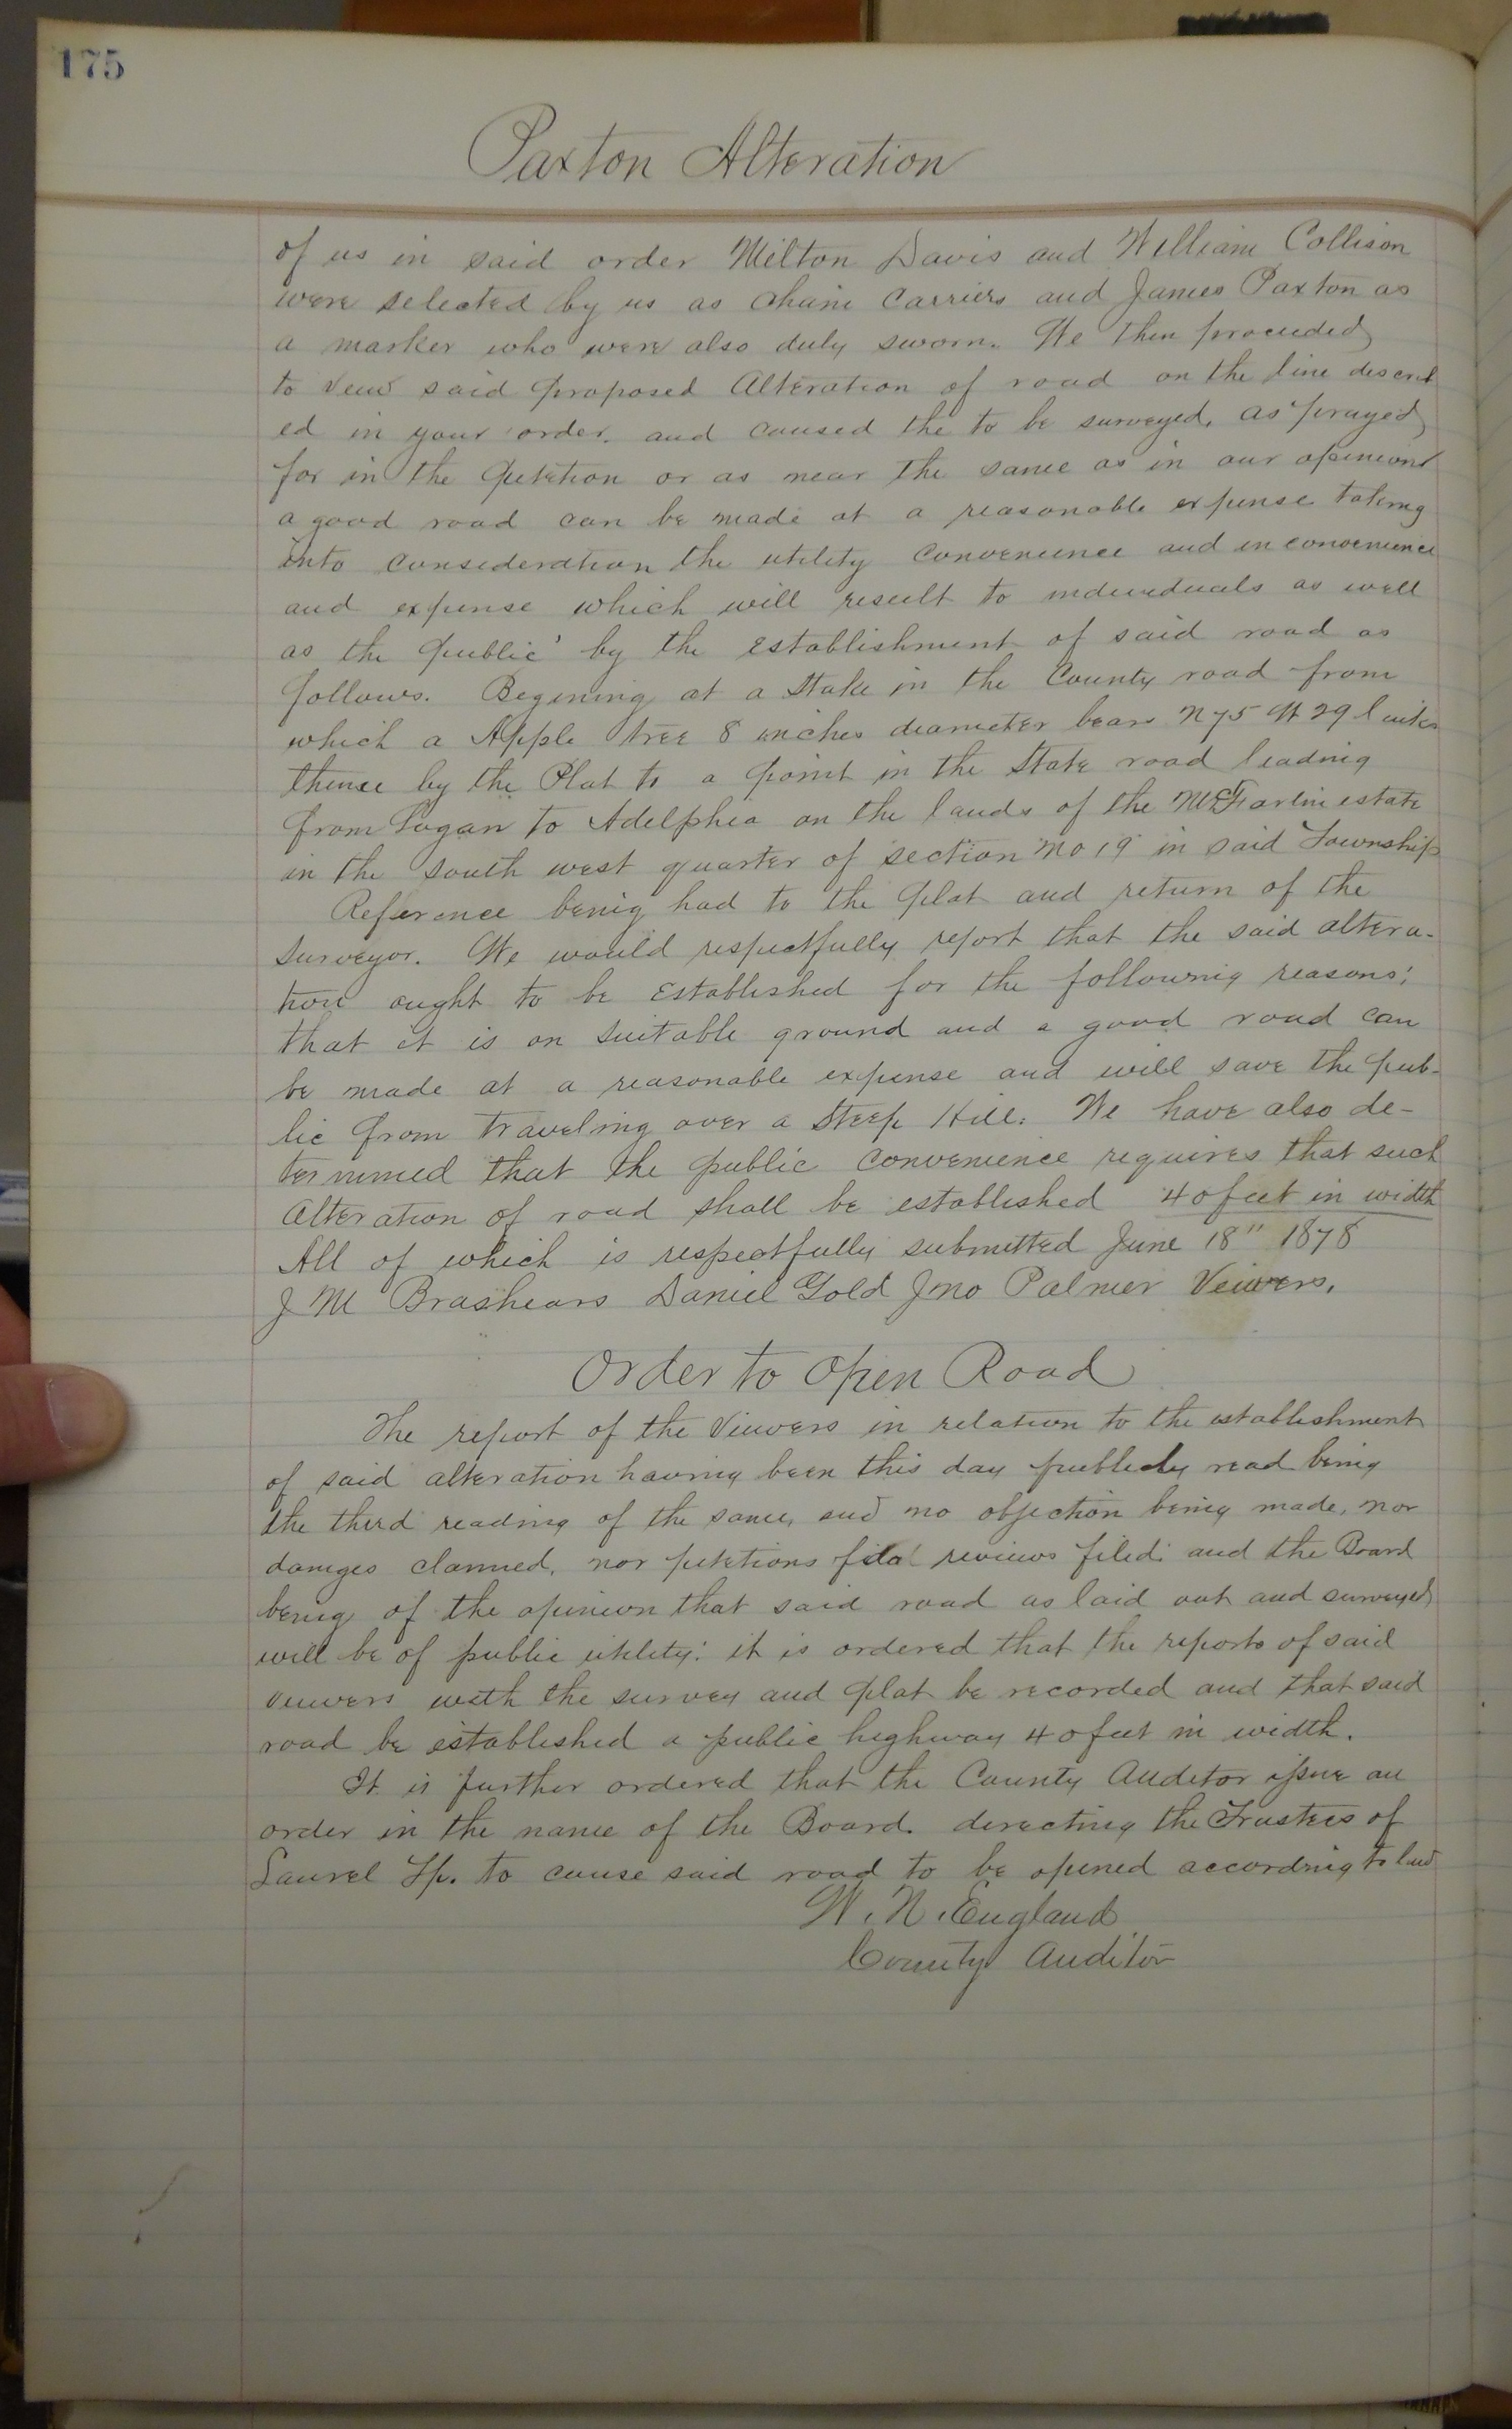 175
Paxton Alteration
of us in said order Milton Davis and William Collison
were selected by us as chain carriers and James Paxton as
a marker who were also duly sworn. We then proceeded
to veiw said proposed Alteration of road on the line describ
ed in your order. and caused the to be surveyed, as prayed
for in the petition or as near the same as in our opinions
a good road can be made at a reasonable expense taking
into consideration the utility convenience and inconvenience
and expense which will result to individuals as well
as the public by the establishment of said road as
follows. Begining at a Stake in the County road from
which a Apple tree 8 inches diameter bears N 75 W 29 links
thence by the Plat to a point in the State road leading
from Logan to Adelphia on the lands of the McFarlin estate
in the South west quarter of section No 19 in said Township
Reference being had to the plat and return of the
surveyor. We would respectfully report that the said altera-
tion ought to be Established for the following reasons;
that it is on suitable ground and a good road can
be made at a reasonable expense and will save the pub-
lic from traveling over a Steep Hill. We have also de-
termined that the public convenience requires that such
Alteration of road shall be established 40 feet in width
All of which is respectfully submitted June 18" 1878
J M Brashears Daniel Gold Jno Palmer Veiwers.
Order to Open Road
The report of the Viewers in relation to the establishment
of said alteration having been this day publicly read being
the third reading of the same, and no objection being made, nor
damges claimed, nor petitions reviews filed; and the Board
being of the opinion that said road as laid out and surveyed
will be of public utility: it is ordered that the reports of said
viewers with the survey and plat be recorded and that said
road be established a public highway 40 feet in width.
It is further ordered that the County Auditor issue an
order in the name of the Board. directing the Trustees of
Laurel Tp. to cause said road to be opened according to law
W. N. England
County Auditor